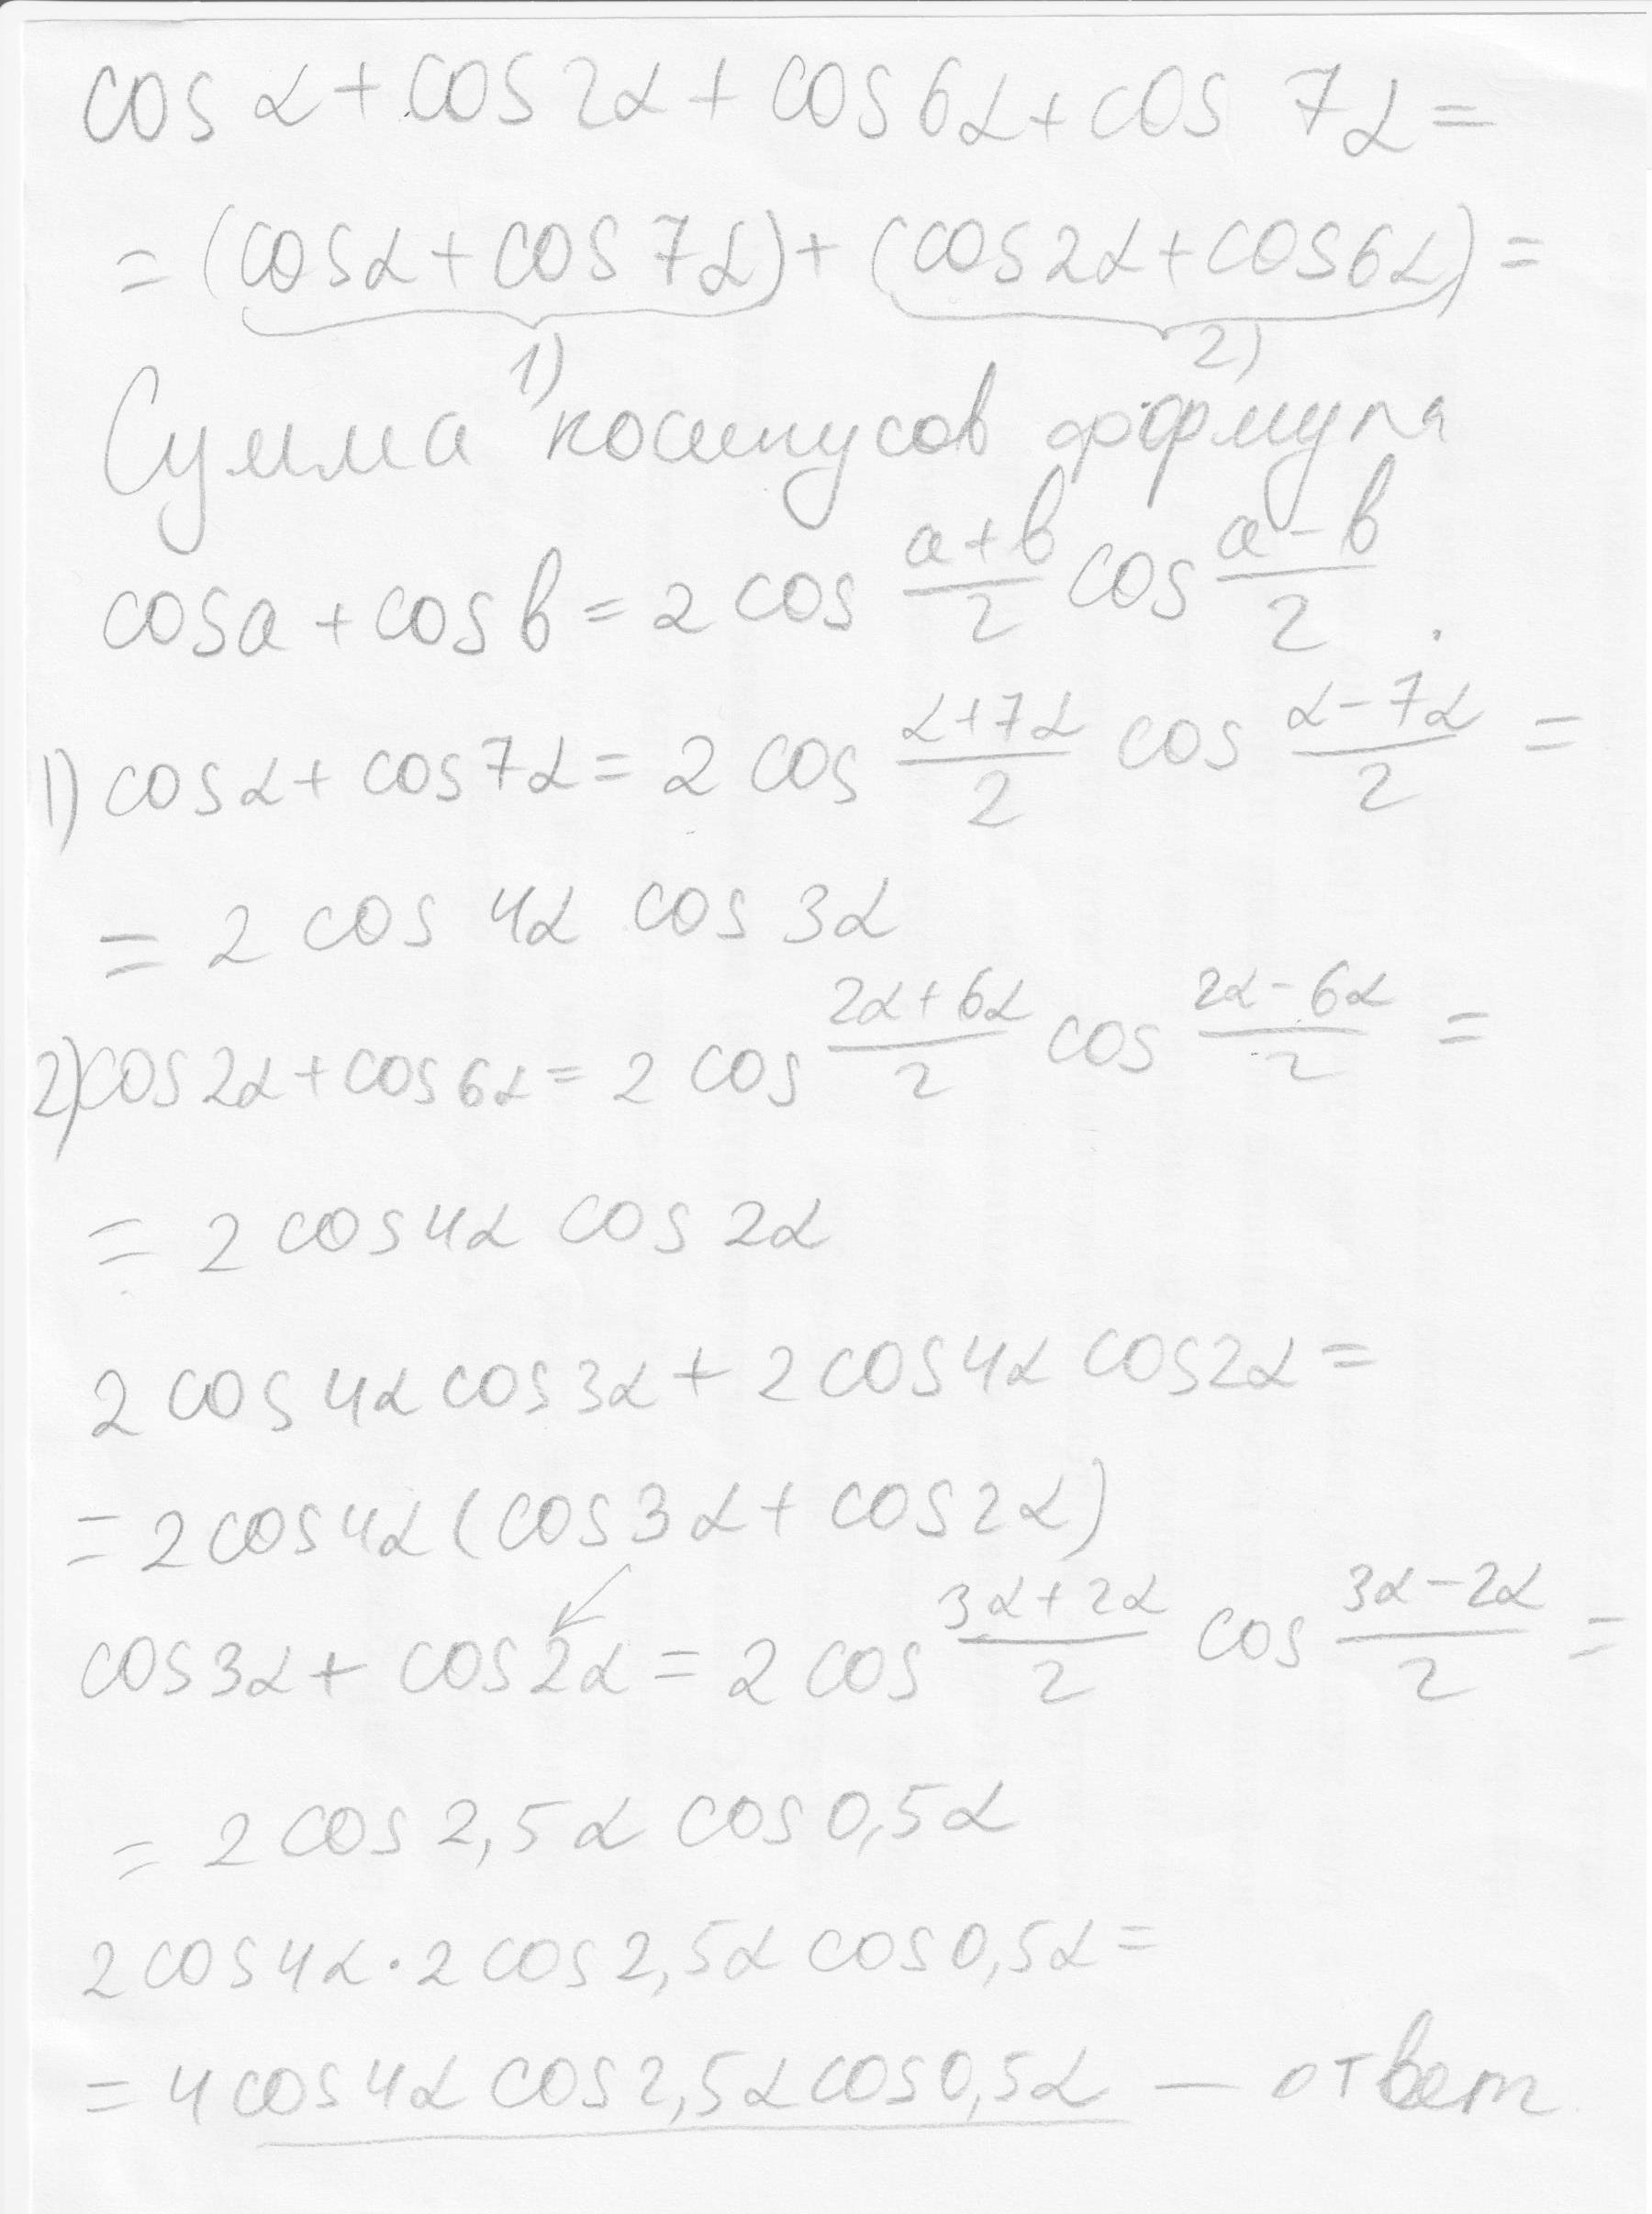 cos α + cos 2α + cos 6α + cos 7α =
= (cos α + cos 7α) + (cos 2α + cos 6α) =
1) 2)
Сумма косинусов формула
cos a + cos b = 2 cos (a+b)/2 cos (a−b)/2
1) cos α + cos 7α = 2 cos (α+7α)/2 cos (α−7α)/2 =
= 2 cos 4α cos 3α
2) cos 2α + cos 6α = 2 cos (2α+6α)/2 cos (2α−6α)/2 =
= 2 cos 4α cos 2α
2 cos 4α cos 3α + 2 cos 4α cos 2α =
= 2 cos 4α (cos 3α + cos 2α)
cos 3α + cos 2α = 2 cos (3α+2α)/2 cos (3α−2α)/2 =
= 2 cos 2,5α cos 0,5α
2 cos 4α · 2 cos 2,5α cos 0,5α =
= 4 cos 4α cos 2,5α cos 0,5α — ответ